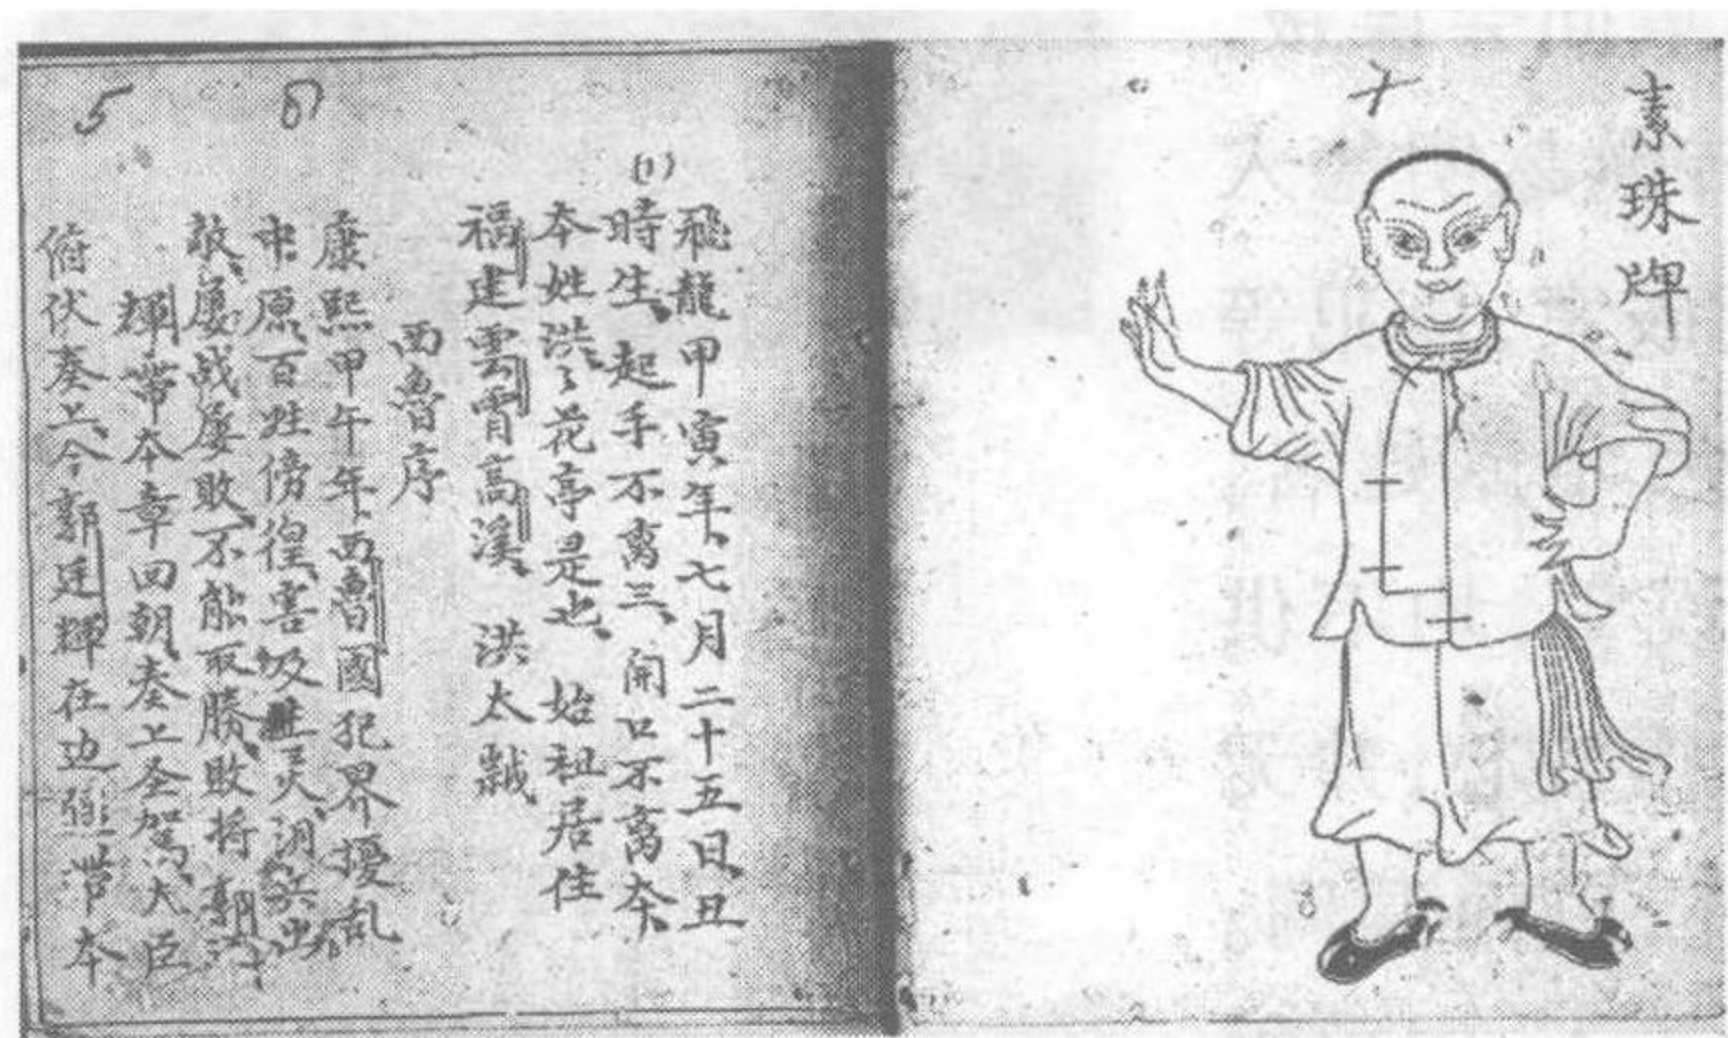 素珠牌
十
飛龍甲寅年七月二十五日丑
(1)
時生起手不离三開口不离本
本姓洪〻花亭是也 始祖居住
福建雲霄高溪 洪太歳
西魯序
康熙甲午年西魯國犯界擾乱
中原百姓傍徨害及生灵開兵出
敵屡战屡敗不能取勝敗将郭廷
輝带本章回朝奏上圣驾大臣
俯伏奏上今郭廷輝在边 带本
6
5